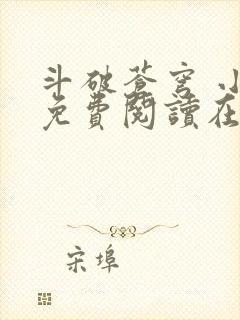 斗破苍穹 小
免費閱讀在
宋埠